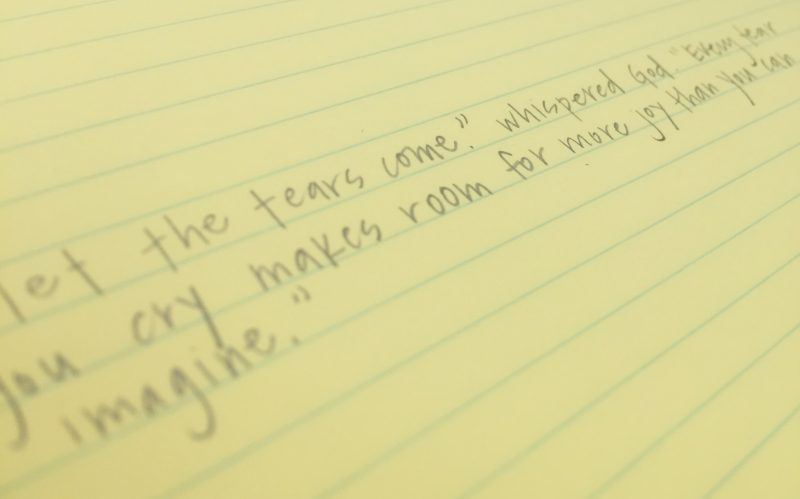 let the tears come". whispered God. "Every tear
you cry makes room for more joy than you can
imagine."